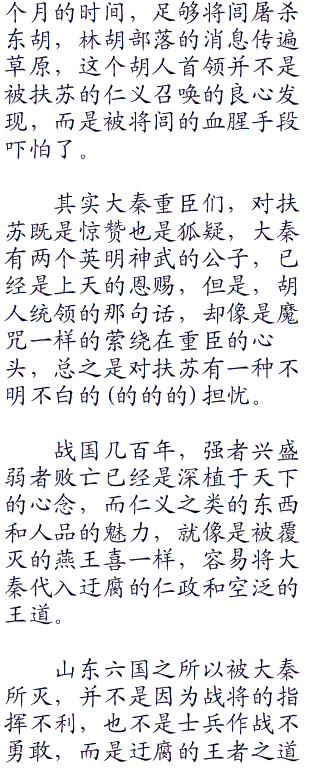 个月的时间，足够将闾屠杀
东胡，林胡部落的消息传遍
草原，这个胡人首领并不是
被扶苏的仁义召唤的良心发
现，而是被将闾的血腥手段
吓怕了。
其实大秦重臣们，对扶
苏既是惊赞也是狐疑，大秦
有两个英明神武的公子，已
经是上天的恩赐，但是，胡
人统领的那句话，却像是魔
咒一样的萦绕在重臣的心
头，总之是对扶苏有一种不
明不白的(的的的)担忧。
战国几百年，强者兴盛
弱者败亡已经是深植于天下
的心念，而仁义之类的东西
和人品的魅力，就像是被覆
灭的燕王喜一样，容易将大
秦代入迂腐的仁政和空泛的
王道。
山东六国之所以被大秦
所灭，并不是因为战将的指
挥不利，也不是士兵作战不
勇敢，而是迂腐的王者之道